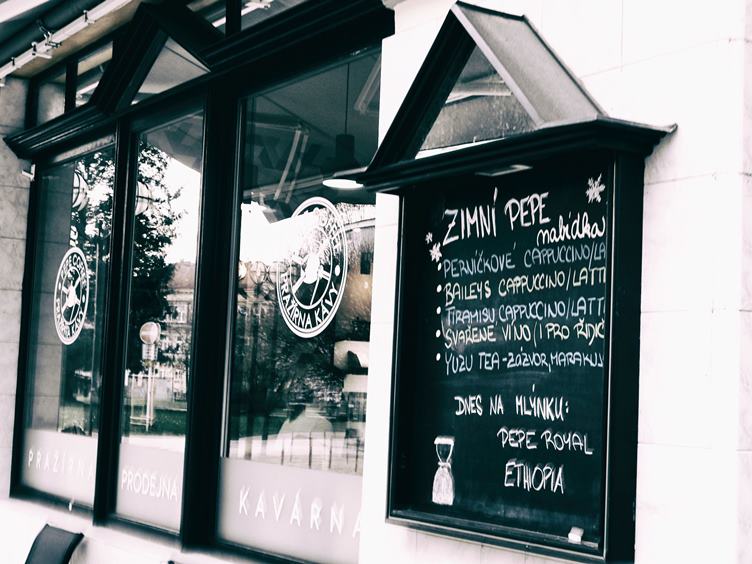 ZIMNÍ PEPE
nabídka
PERNÍČKOVÉ CAPPUCCINO/LA
• BAILEYS CAPPUCCINO/LATT
• TIRAMISU CAPPUCCINO/LATT
• SVAŘENÉ VÍNO/I PRO ŘIDIČ
• YUZU TEA-ZÁZVOR, MARAKUJ
DNES NA MLÝNKU:
PEPE ROYAL
ETHIOPIA
PRAŽÍRNA KÁVY
PRAŽÍRNA
PRODEJNA
KAVÁRNA